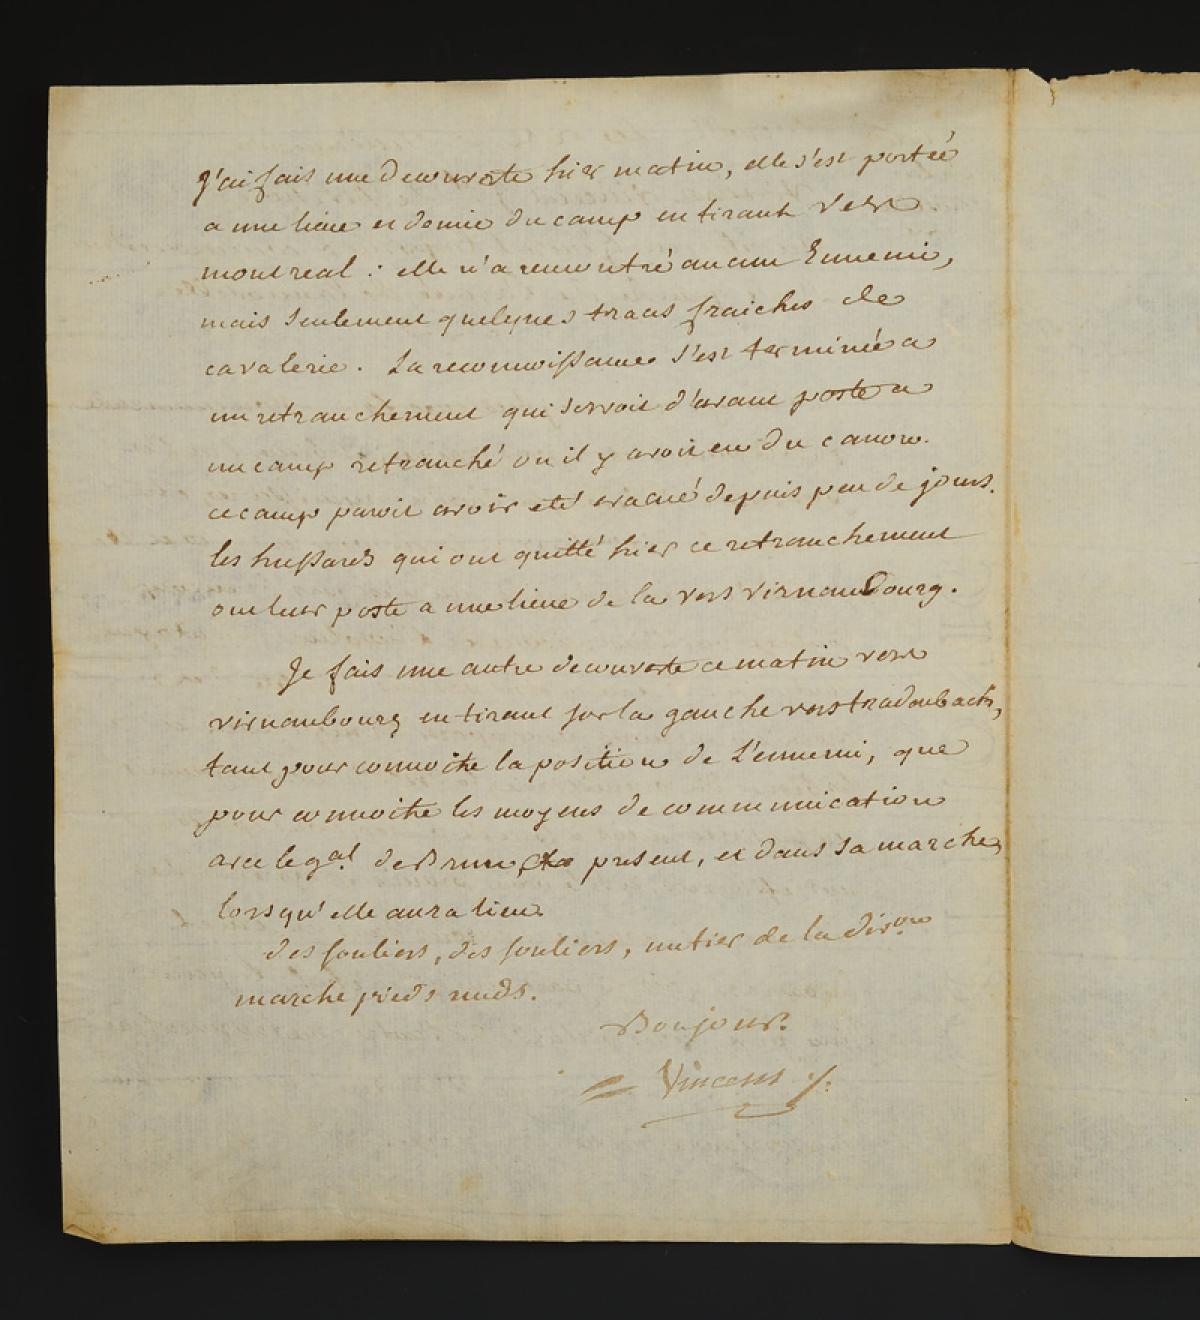 J'ai fait une decouverte hier matin, elle s'est portée
a une lieue et demie du camp en tirant vers
montreal : elle n'a rencontré aucun Ennemi,
mais seulement quelques traces fraiches de
cavalerie. La reconnoissance s'est terminée a
un retranchement qui servoit d'avant poste a
un camp retranché ou il y avoit eu du canon.
ce camp paroit avoir eté evacué depuis peu de jours.
les hussards qui ont quitté hier ce retranchement
ont leur poste a une lieue de la vers virnembourg.
Je fais une autre decouverte ce matin vers
virnembourg en tirant sur la gauche vers tradenbach,
tant pour connoitre la position de l'ennemi, que
pour connoitre les moyens de communication
avec le gal. debrun présent, et dans sa marche,
lorsqu'elle aura lieu.
des souliers, des souliers, un tier de la divon
marche pieds nuds.
Bonjour.
Vincent